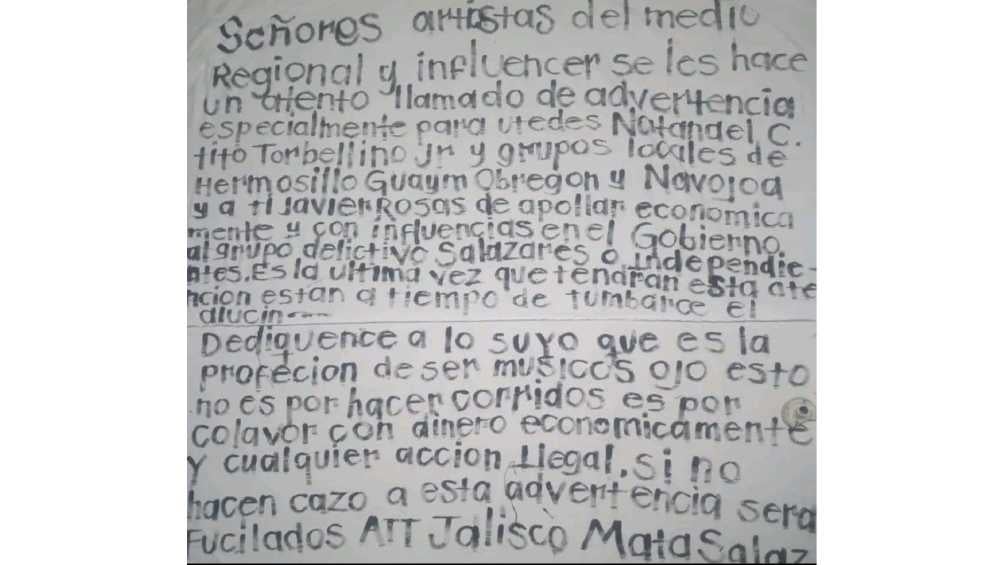 Señores artistas del medio
Regional y influencer se les hace
un atento llamado de advertencia
especialmente para utedes Natandel C.
tito Torbellino jr y grupos locales de
Hermosillo Guaym Obregon y Navojoa
y a ti Javier Rosas de apollar economica
mente y con influencias en el Gobierno
al grupo delictivo Salazares o independie-
ntes. Es la ultima vez que tendran esta ate
ncion estan a tiempo de tumbarce el
alucin
Dediquence a lo suyo que es la
profecion de ser musicos ojo esto
no es por hacer corridos es por
colavor con dinero economicamente
y cualquier accion ilegal, si no
hacen cazo a esta advertencia sera
Fucilados ATT Jalisco Mata Salaz